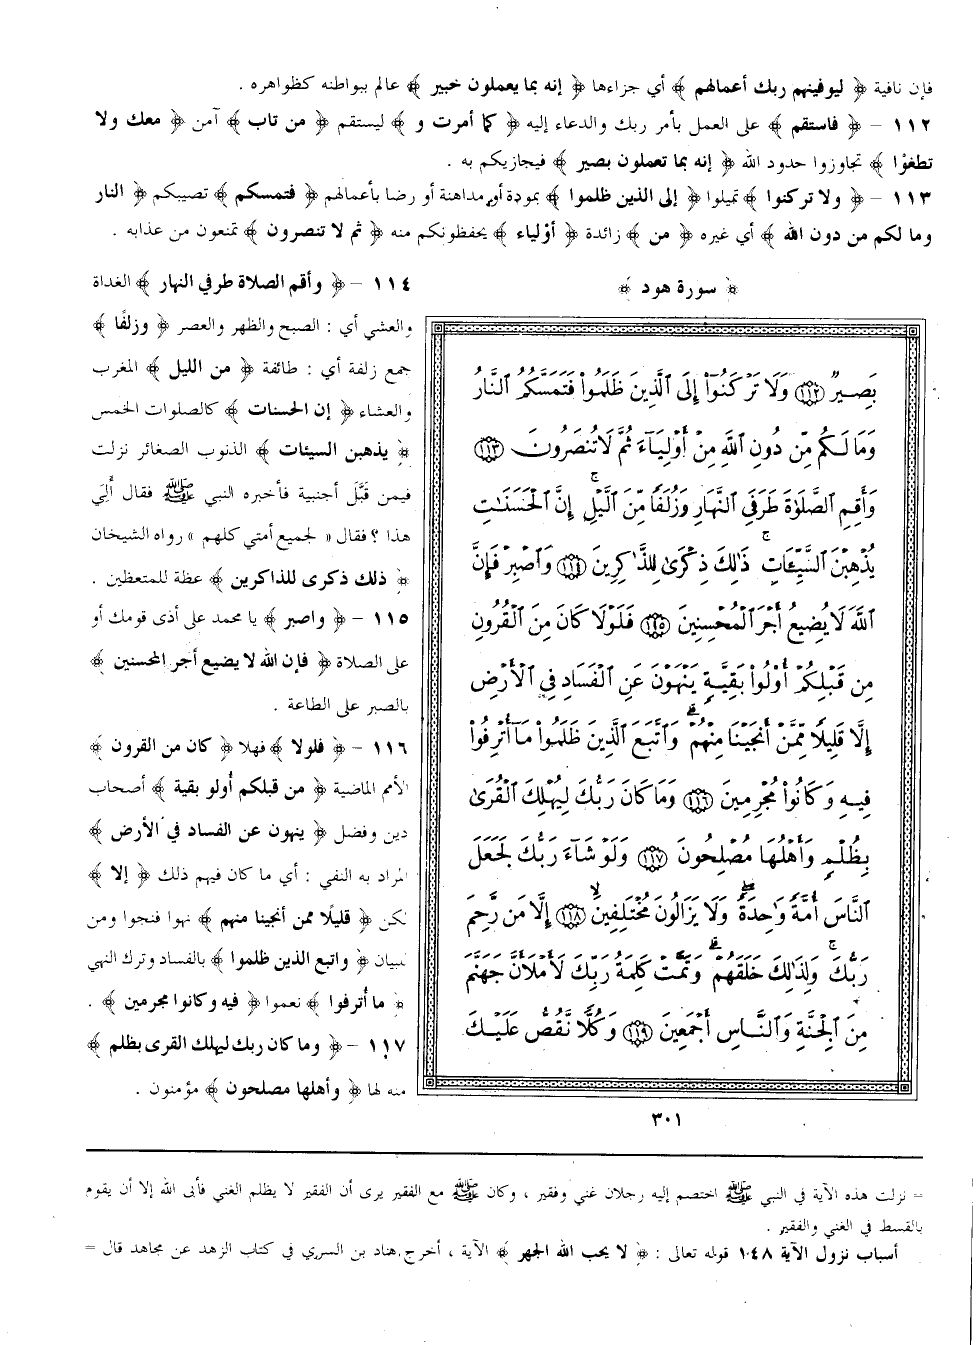 فإن نافية ﴿ ليوفينهم ربك أعمالهم ﴾ أي جزاءها ﴿ إنه بما يعملون خبير ﴾ عالم ببواطنه كظواهره .
١١٢ – ﴿ فاستقم ﴾ على العمل بأمر ربك والدعاء إليه ﴿ كما أمرت و ﴾ ليستقم ﴿ من تاب ﴾ آمن ﴿ معك ولا
تطغوا ﴾ تجاوزوا حدود الله ﴿ إنه بما تعملون بصير ﴾ فيجازيكم به .
١١٣ – ﴿ ولا تركنوا ﴾ تميلوا ﴿ إلى الذين ظلموا ﴾ بمودة أو مداهنة أو رضا بأعمالهم ﴿ فتمسكم ﴾ تصيبكم ﴿ النار
وما لكم من دون الله ﴾ أي غيره ﴿ من ﴾ زائدة ﴿ أولياء ﴾ يحفظونكم منه ﴿ ثم لا تنصرون ﴾ تمنعون من عذابه .
﴿ سورة هود ﴾
بَصِيرٌ ١١٢ وَلَا تَرْكَنُوٓا۟ إِلَى ٱلَّذِينَ ظَلَمُوا۟ فَتَمَسَّكُمُ ٱلنَّارُ
وَمَا لَكُم مِّن دُونِ ٱللَّهِ مِنْ أَوْلِيَآءَ ثُمَّ لَا تُنصَرُونَ ١١٣
وَأَقِمِ ٱلصَّلَوٰةَ طَرَفَىِ ٱلنَّهَارِ وَزُلَفًا مِّنَ ٱلَّيْلِ ۚ إِنَّ ٱلْحَسَنَٰتِ
يُذْهِبْنَ ٱلسَّيِّـَٔاتِ ۚ ذَٰلِكَ ذِكْرَىٰ لِلذَّٰكِرِينَ ١١٤ وَٱصْبِرْ فَإِنَّ
ٱللَّهَ لَا يُضِيعُ أَجْرَ ٱلْمُحْسِنِينَ ١١٥ فَلَوْلَا كَانَ مِنَ ٱلْقُرُونِ
مِن قَبْلِكُمْ أُو۟لُوا۟ بَقِيَّةٍ يَنْهَوْنَ عَنِ ٱلْفَسَادِ فِى ٱلْأَرْضِ
إِلَّا قَلِيلًا مِّمَّنْ أَنجَيْنَا مِنْهُمْ ۗ وَٱتَّبَعَ ٱلَّذِينَ ظَلَمُوا۟ مَآ أُتْرِفُوا۟
فِيهِ وَكَانُوا۟ مُجْرِمِينَ ١١٦ وَمَا كَانَ رَبُّكَ لِيُهْلِكَ ٱلْقُرَىٰ
بِظُلْمٍ وَأَهْلُهَا مُصْلِحُونَ ١١٧ وَلَوْ شَآءَ رَبُّكَ لَجَعَلَ
ٱلنَّاسَ أُمَّةً وَٰحِدَةً ۖ وَلَا يَزَالُونَ مُخْتَلِفِينَ ١١٨ إِلَّا مَن رَّحِمَ
رَبُّكَ ۚ وَلِذَٰلِكَ خَلَقَهُمْ ۗ وَتَمَّتْ كَلِمَةُ رَبِّكَ لَأَمْلَأَنَّ جَهَنَّمَ
مِنَ ٱلْجِنَّةِ وَٱلنَّاسِ أَجْمَعِينَ ١١٩ وَكُلًّا نَّقُصُّ عَلَيْكَ
٣٠١
١١٤ – ﴿ وأقم الصلاة طرفي النهار ﴾ الغداة
والعشي أي : الصبح والظهر والعصر ﴿ وزلفًا ﴾
جمع زلفة أي : طائفة ﴿ من الليل ﴾ المغرب
والعشاء ﴿ إن الحسنات ﴾ كالصلوات الخمس
﴿ يذهبن السيئات ﴾ الذنوب الصغائر نزلت
فيمن قَبَّل أجنبية فأخبره النبي ﷺ فقال أَلِيَ
هذا ؟ فقال « لجميع أمتي كلهم » رواه الشيخان
﴿ ذلك ذكرى للذاكرين ﴾ عظة للمتعظين .
١١٥ – ﴿ واصبر ﴾ يا محمد على أذى قومك أو
على الصلاة ﴿ فإن الله لا يضيع أجر المحسنين ﴾
بالصبر على الطاعة .
١١٦ – ﴿ فلولا ﴾ فهلا ﴿ كان من القرون ﴾
الأمم الماضية ﴿ من قبلكم أُولو بقية ﴾ أصحاب
دين وفضل ﴿ ينهون عن الفساد في الأرض ﴾
المراد به النفي : أي ما كان فيهم ذلك ﴿ إلا ﴾
لكن ﴿ قليلًا ممن أنجينا منهم ﴾ نهوا فنجوا ومن
للبيان ﴿ واتبع الذين ظلموا ﴾ بالفساد وترك النهي
﴿ ما أُترفوا ﴾ نعموا ﴿ فيه وكانوا مجرمين ﴾ .
١١٧ – ﴿ وما كان ربك ليهلك القرى بظلم ﴾
منه لها ﴿ وأهلها مصلحون ﴾ مؤمنون .
= نزلت هذه الآية في النبي ﷺ اختصم إليه رجلان غني وفقير ، وكان ﷺ مع الفقير يرى أن الفقير لا يظلم الغني فأبى الله إلا أن يقوم
بالقسط في الغني والفقير .
أسباب نزول الآية ١٤٨ قوله تعالى : ﴿ لا يحب الله الجهر ﴾ الآية ، أخرج هناد بن السري في كتاب الزهد عن مجاهد قال =